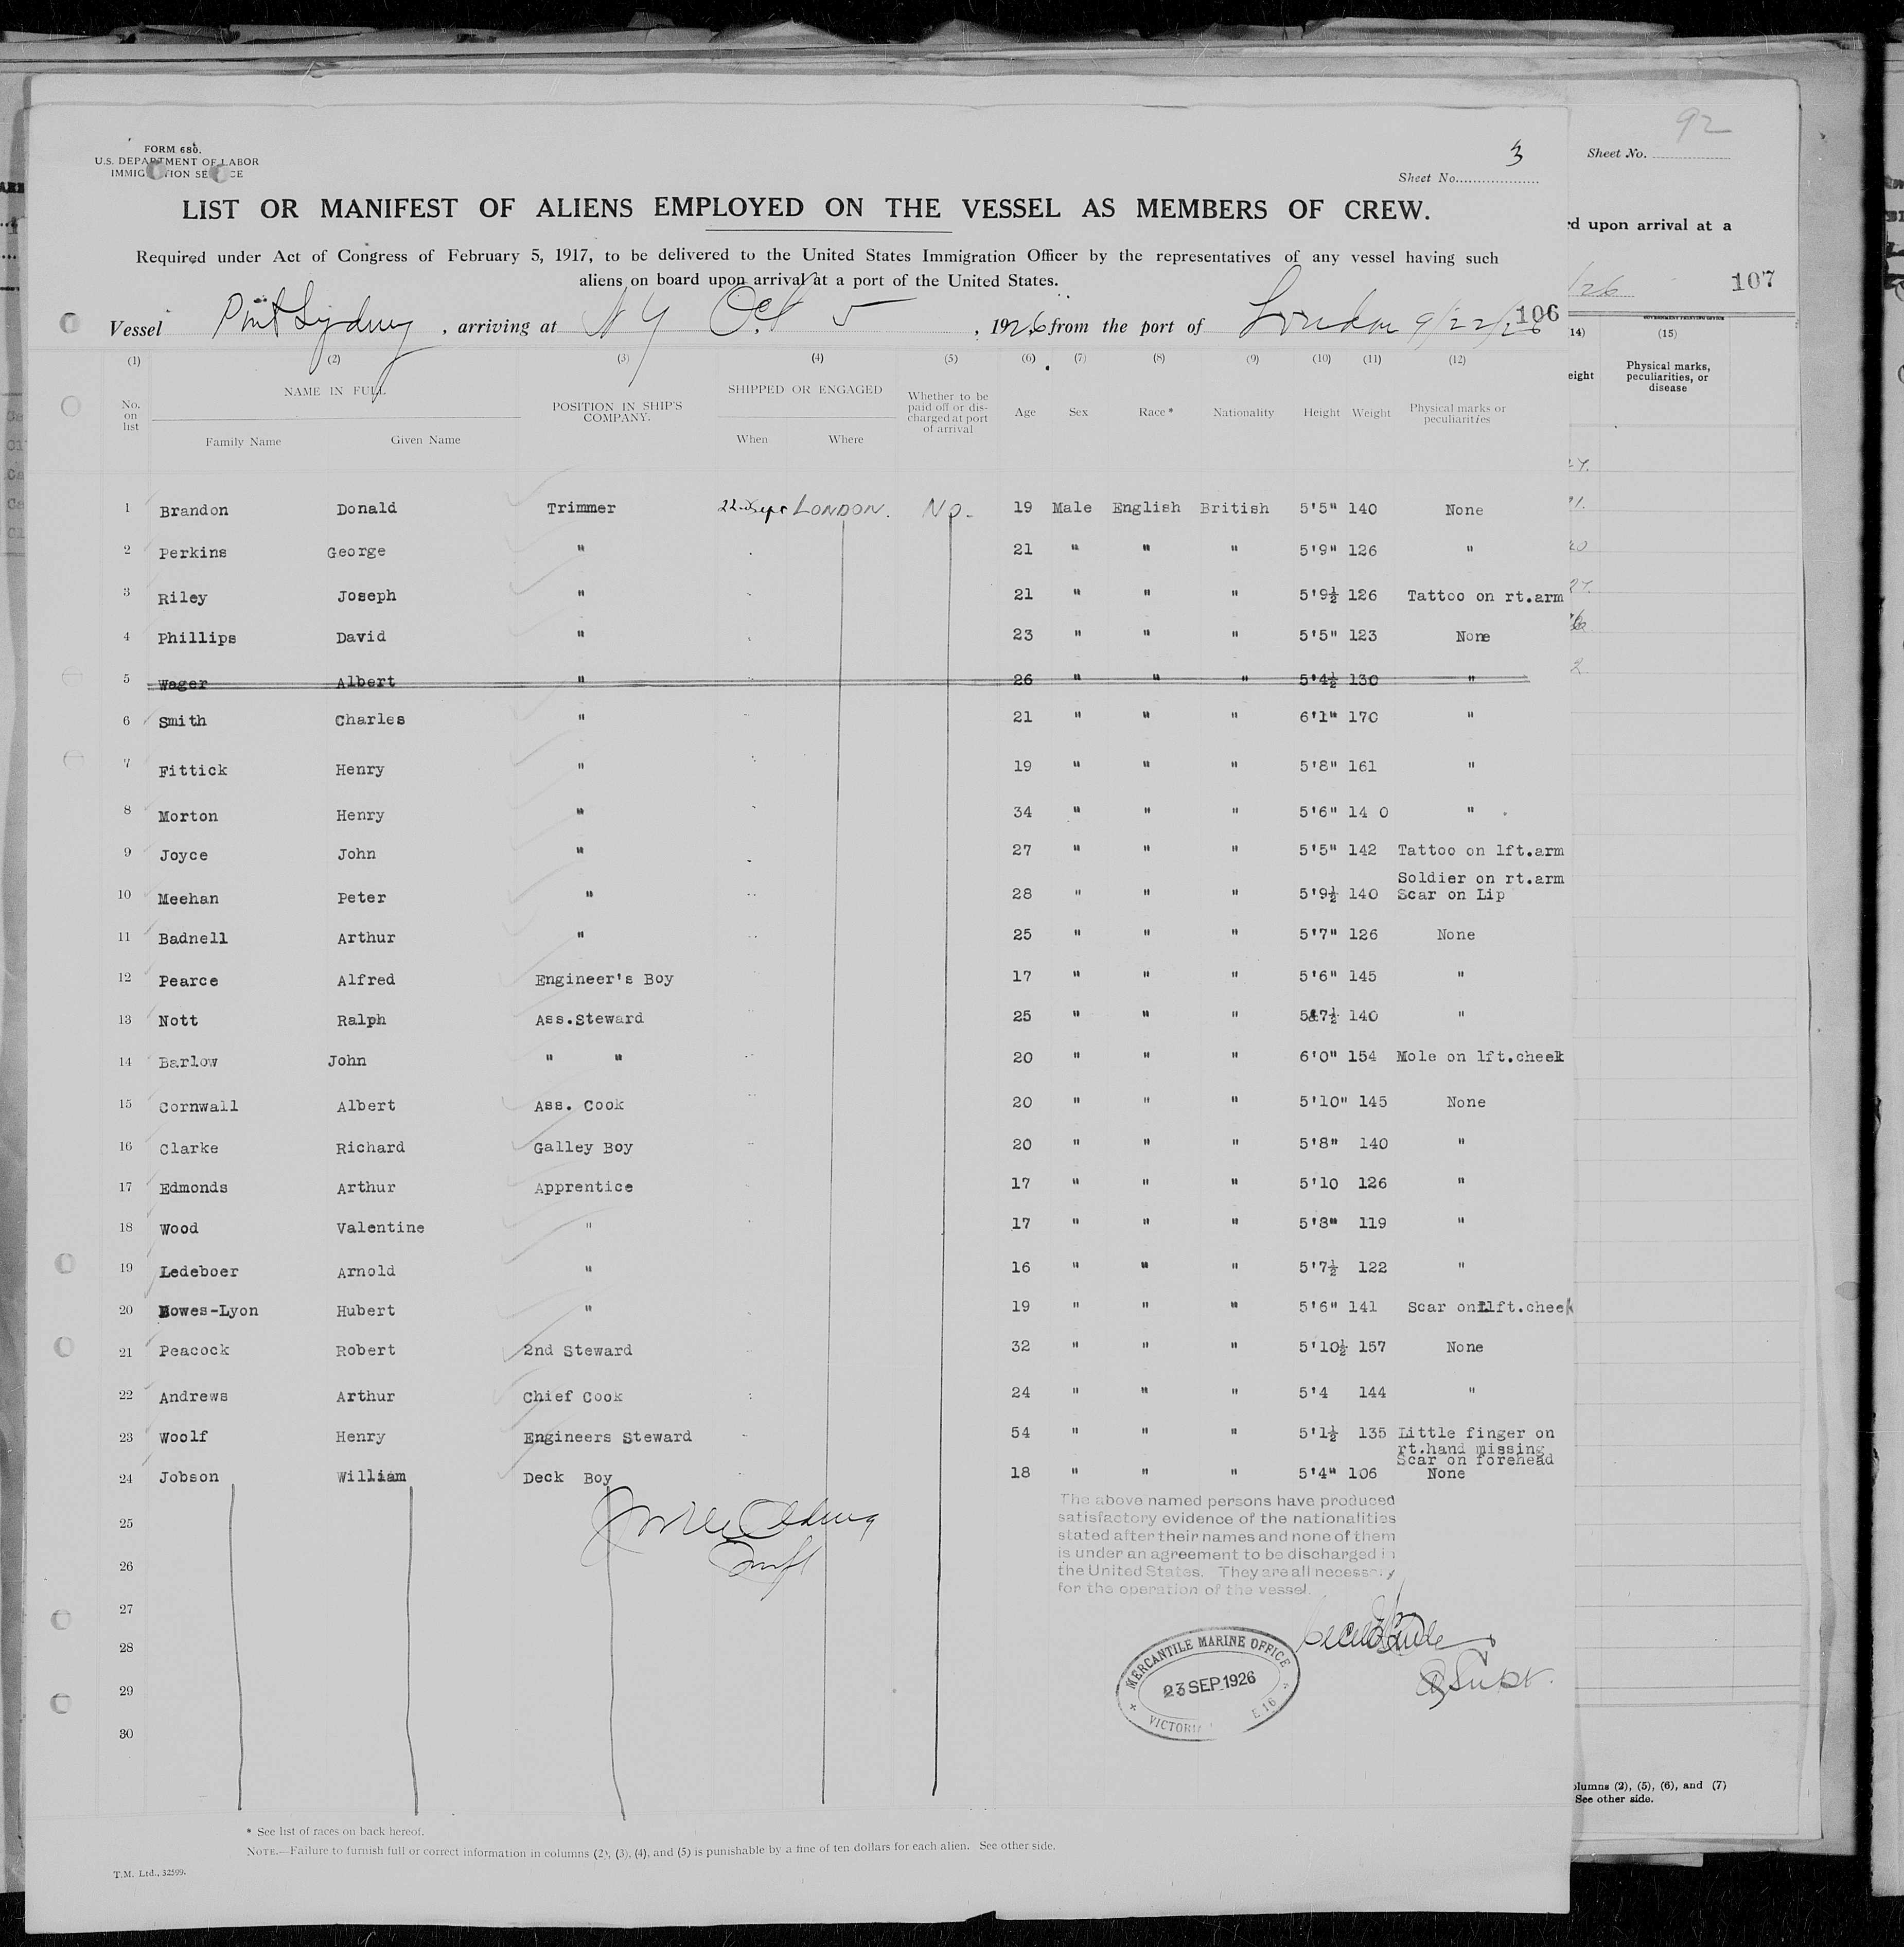 FORM 680.
U.S. DEPARTMENT OF LABOR
IMMIGRATION SERVICE
3
Sheet No.
LIST OR MANIFEST OF ALIENS EMPLOYED ON THE VESSEL AS MEMBERS OF CREW.
Required under Act of Congress of February 5, 1917, to be delivered to the United States Immigration Officer by the representatives of any vessel having such
aliens on board upon arrival at a port of the United States.
106
Vessel Port Sydney, arriving at N Y Oct 5, 1926 from the port of London 9/22/26
(1) (2) (3) (4) (5) (6) (7) (8) (9) (10) (11) (12)
No. on list NAME IN FULL POSITION IN SHIP'S COMPANY. SHIPPED OR ENGAGED Whether to be paid off or discharged at port of arrival Age Sex Race* Nationality Height Weight Physical marks or peculiarities
Family Name Given Name When Where
1 Brandon Donald Trimmer 22 Sept LONDON. No. 19 Male English British 5'5" 140 None
2 Perkins George " 21 " " " 5'9" 126 "
3 Riley Joseph " 21 " " " 5'9½ 126 Tattoo on rt.arm
4 Phillips David " 23 " " " 5'5" 123 None
5 Wager Albert " 26 " " " 5'4½ 130 "
6 Smith Charles " 21 " " " 6'1" 170 "
7 Fittick Henry " 19 " " " 5'8" 161 "
8 Morton Henry " 34 " " " 5'6" 14 0 "
9 Joyce John " 27 " " " 5'5" 142 Tattoo on lft.arm
Soldier on rt.arm
10 Meehan Peter " 28 " " " 5'9½ 140 Scar on Lip
11 Badnell Arthur " 25 " " " 5'7" 126 None
12 Pearce Alfred Engineer's Boy 17 " " " 5'6" 145 "
13 Nott Ralph Ass.Steward 25 " " " 5'7½ 140 "
14 Barlow John " " 20 " " " 6'0" 154 Mole on lft.cheek
15 Cornwall Albert Ass. Cook 20 " " " 5'10" 145 None
16 Clarke Richard Galley Boy 20 " " " 5'8" 140 "
17 Edmonds Arthur Apprentice 17 " " " 5'10 126 "
18 Wood Valentine " 17 " " " 5'8" 119 "
19 Ledeboer Arnold " 16 " " " 5'7½ 122 "
20 Bowes-Lyon Hubert " 19 " " " 5'6" 141 Scar on lft.cheek
21 Peacock Robert 2nd Steward 32 " " " 5'10½ 157 None
22 Andrews Arthur Chief Cook 24 " " " 5'4 144 "
23 Woolf Henry Engineers Steward 54 " " " 5'1½ 135 Little finger on
rt.hand missing
Scar on forehead
24 Jobson William Deck Boy 18 " " " 5'4" 106 None
25
26
27
28
29
30
The above named persons have produced
satisfactory evidence of the nationalities
stated after their names and none of them
is under an agreement to be discharged in
the United States. They are all necessary
for the operation of the vessel.
MERCANTILE MARINE OFFICE
23 SEP 1926
VICTORIA E 16
Supt.
* See list of races on back hereof.
NOTE.—Failure to furnish full or correct information in columns (2), (3), (4), and (5) is punishable by a fine of ten dollars for each alien. See other side.
T.M. Ltd., 32599.
92
Sheet No.
rd upon arrival at a
/26
107
GOVERNMENT PRINTING OFFICE
14) (15)
eight Physical marks, peculiarities, or disease
olumns (2), (5), (6), and (7)
See other side.